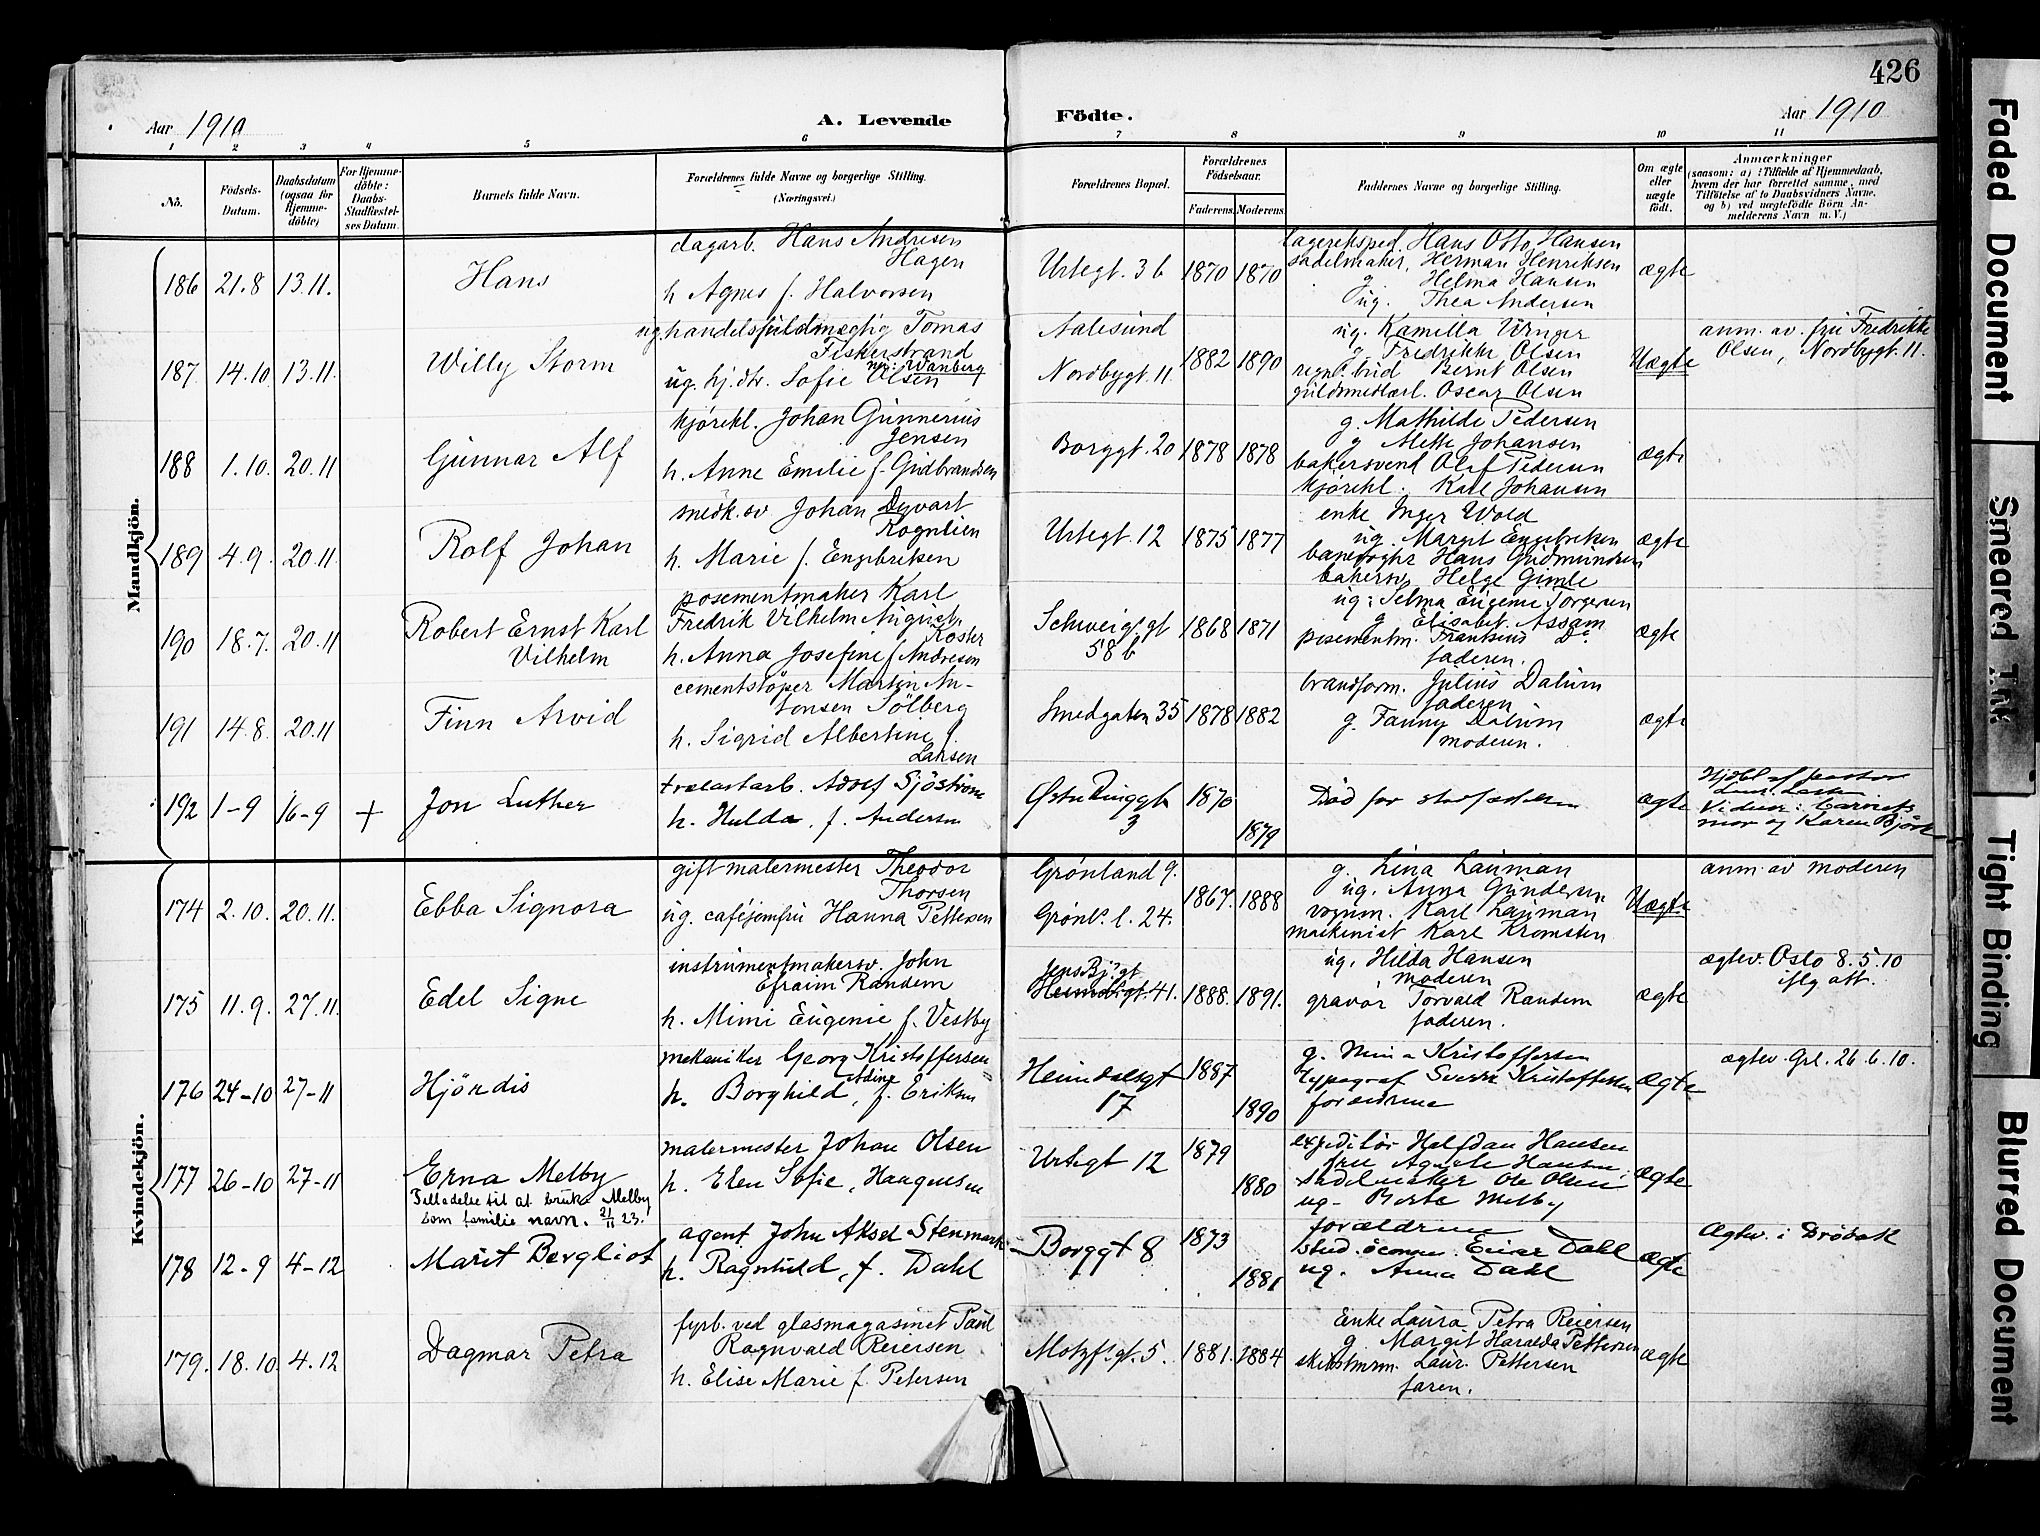 426
Aar 1910
A. Levende
Födte.
Aar 1910
1 2 3 4 5 6 7 8 9 10 11
No.
Födsels-
Datum.
Daabsdatum
(ogsaa for
Hjemme-
döbte)
For Hjemme-
döbte:
Daabs-
Stadfæstel-
ses Datum.
Barnets fulde Navn.
Forældrenes fulde Navne og borgerlige Stilling.
(Næringsvei.)
Forældrenes Bopæl.
Forældrenes
Födselsaar.
Faderens. Moderens.
Faddernes Navne og borgerlige Stilling.
Om ægte
eller
uægte
födt.
Anmærkninger
(saasom: a) i Tilfælde af Hjemmedaab,
hvem der har forrettet samme, med
Tilföielse af to Daabsvidners Navne.
og b) ved uægtefödte Börn An-
melderens Navn m. V.)
Mandkjön.
186 21.8 13.11.
Hans
dagarb. Hans Andresen
Hagen
h Agnes f. Halvorsen
Urtegt. 3 b 1870 1870
lagereksped. Hans Otto Hansen
sadelmaker, Herman Henriksen
g. Helma Hansen
ug. Thea Andersen
ægte
187 14.10 13.11.
Willy Storm
ug handelsfuldmægtig Tomas
Fiskerstrand
ug. hj.dtr. Sofie Olsen
Aalesund
Nordbygt. 11 1882 1890
ug. Kamilla
g. Fredrikke Olsen
bud Bernt Olsen
guldsmedlærl. Oscar Olsen
Uægte
anm. av. fru Fredrikke
Olsen, Nordbygt. 11.
188 1.10. 20.11
Gunnar Alf
kjörekl. Johan Gunnerius
Jensen
h. Anne Emilie f. Gudbrandsen
Borggt. 20 1878 1878
g. Mathilde Pedersen
g Mette Johansen
bakersvend Olaf Pedersen
kjörekl. Karl Johansen
ægte
189 4.9. 20.11
Rolf Johan
snedk.sv Johan Dyvart
Rognlien
h. Marie f. Engebretsen
Urtegt. 12 1875 1877
enke Inger Wold
ug. Margit Engebretsen
banevogter Hans Gudmundsen
bakersv. Helge Gimle
ægte
190 18.7. 20.11
Robert Ernst Karl
Vilhelm
posementmaker Karl
Fredrik Vilhelm August
Köster
h. Anna Josefine f Andresen
Schweigs gt
58 b 1868 1871
ug. Selma Eugenie Torgersen
g Elisabet Assam
posementm. Frantsius Do.
faderen.
ægte
191 14.8. 20.11
Finn Arvid
cementstöper Martin An-
tonsen Sölberg
h. Sigrid Albertine f.
Larsen
Smedgaten 35 1878 1882
brandform. Julius Dalum
faderen
g. Fanny Dalum
moderen.
ægte
192 1-9 16-9 +
Jon Luther
trælastarb. Adolf Sjöström
h. Hulda, f. Andersen
3 1870
1879
Död för
ægte
Hjdbt af pastor
Vidner: barnets
mor og Karen Björk
Kvindekjön.
174 2.10. 20.11.
Ebba Signora
gift malermester Theodor
Thorsen
ug. caféjomfru Hanna Pettersen
Grönland 9.
Grönl.s l. 24. 1867. 1888
g. Lina Lauman
ug. Anna Gundersen
vognm. Karl Lauman
maskinist Karl Kromsten
Uægte
anm. av moderen
175 11.9. 27.11.
Edel Signe
instrumentmakersv. John
Efraim Randem
h. Mimi Eugenie f. Vestby
Jens Bj. gt
41. 1888. 1891.
ug. Hilda Hansen
moderen
gravör Torvald Randem
faderen.
ægte
ægtev. Oslo 8.5.10
iflg att.
176 24-10 27-11
Hjördis
mekaniker Georg Kristoffersen
h. Borghild Adine, f. Eriksen
Heimdalsgt
17 1887
1890
g. Mina Kristoffersen
typograf Sverre Kristoffersen
forældrene
ægte
ægtev. Grl. 26.6.10.
177 26-10 27-11
Erna Melby
Tilladelse til at bruke Melby
som familie navn. 21/11 23.
malermester Johan Olsen
h. Elen Sofie, Haagensen
Urtegt 12 1879
1880
expeditör Halfdan Hansen
fru Agnete Hansen
sadelmaker Ole Olsen
ug. Berte Melby
ægte
178 12-9 4-12
Marit Bergliot
agent John Aksel Stenmark
h. Ragnhild, f. Dahl
Borggt 8 1873
1881
forældrene
stud. öconom. Einar Dahl
ug. Anna Dahl
ægte
Ægtev. i Dröbak
179. 18.10 4.12
Dagmar Petra
fyrb. ved glasmagasinet Paul
Ragnvald Reiersen
h. Elise Marie f. Petersen
Motzfs gt. 5. 1881. 1884
Enke Laura Petra Reiersen
g. Margit Haralda Pettersen
Laur. Pettersen
faren.
ægte
Faded Document
Smeared Ink
Tight Binding
Blurred Document